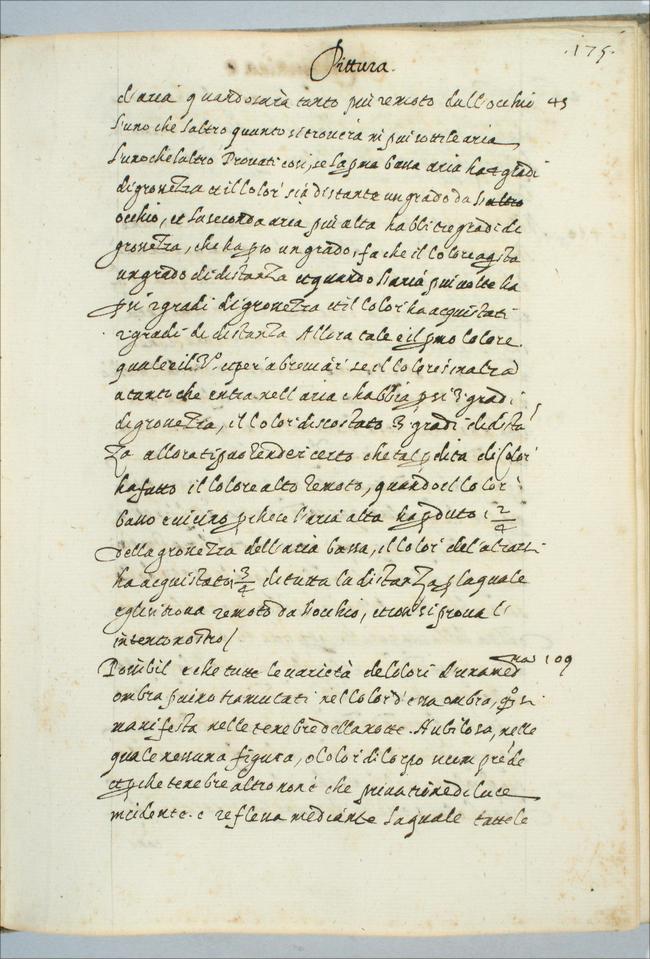 .175.
Pittura.
d'aria quando sarà tanto piu remoto dall'occhio 43
l'uno che l'altro quanto si trouerà ni piu sottile aria
l'uno che l'altro Prouasi cosi, se la pma bassa aria ha 4 gradi
di grossezza et il color sia distante un grado da l'altro
occhio, et la seconda aria piu alta habbi tre gradi di
grossezza, che ha pso un grado, fa che il colore agista
un grado di distanza et quando l'aria piu alta ha
psi 2 gradi di grossezza et il color ha acquistati
2 gradi di distanza Allora tale e il pmo colore
quale e il 3º. e per abreuiar se il colore s'inalza
a tanto che entra nell'aria c'habbia psi 3 gradi
di grossezza, il color discostato 3 gradi di distā
za allora ti puo render certo che tal pdita di color
ha fatto il colore alto remoto, quando el color
basso e uicino pche se l'aria alta ha pduto i 2/4
della grossezza dell'aria bassa, il color del
ha acquistati 3/4 di tutta la distanza p laquale
egli si troua remoto da l'occhio, et cosi si proua l'
intento nostro /
Possibil e che tutte le uarietà de colori d'una med ma 109
ombra paino tramutati nel color d'essa ombra, qo si
manifesta nelle tenebre della notte. Nubilosa, nelle
quale nessuna figura, o color di corpo num prēde
et pche tenebre altro non è che priuatione di luce
incidente. e reflessa mediante laquale tutte le